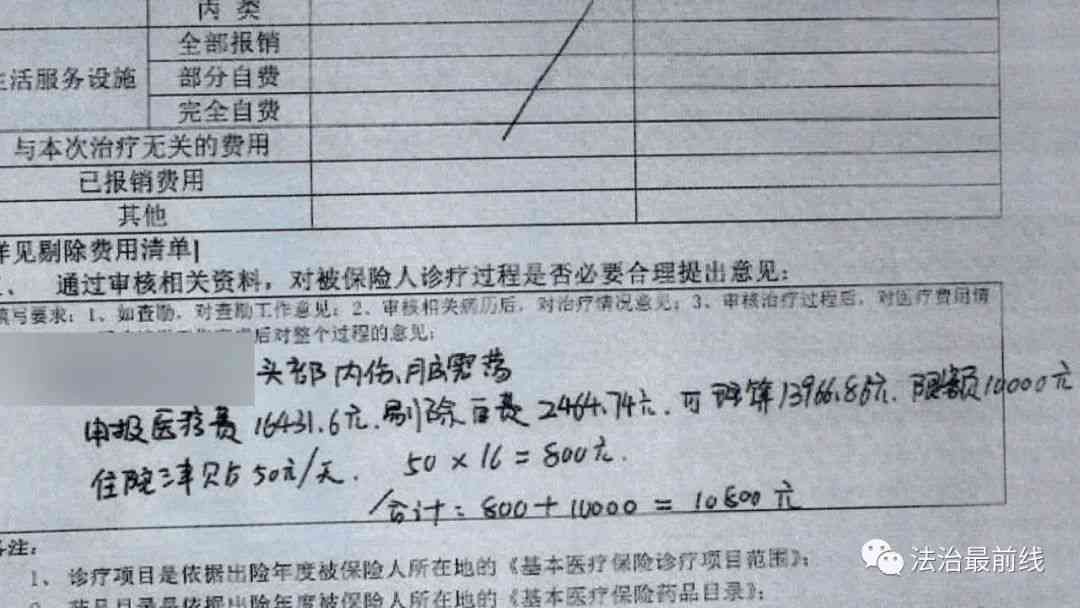 丙 类
全部报销
生活服务设施
部分自费
完全自费
与本次治疗无关的费用
已报销费用
其他
详见剔除费用清单
、 通过审核相关资料，对被保险人诊疗过程是否必要合理提出意见：
填写要求：1、如查勘，对查勘工作意见；2、审核相关病历后，对治疗情况意见；3、审核治疗过程后，对医疗费用情
后对整个过程的意见；
头部内伤、脑震荡
申报医疗费16431.6元.剔除自费2464.74元.可理算13966.86元.限额10000元
住院津贴50元/天. 50×16=800元.
合计：800+10000=10800元
备注：
1、诊疗项目是依据出险年度被保险人所在地的《基本医疗保险诊疗项目范围》；
药品目录是依据出险年度被保险人所在地的《基本医疗保险药品目录》；
法治最前线